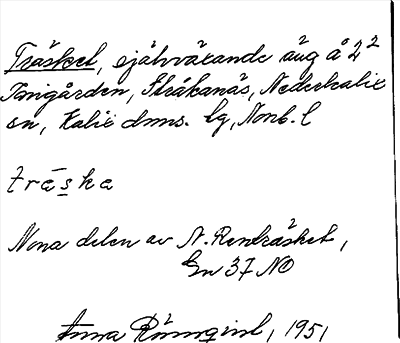 Träsket, självväxande äng å 2²
Tonigården, Stråkanäs, Nederkalix
sn, Kalix dmns. lg, Nonb. l
träska
Norra delen av N. Renträsket,
Gn 37 NO
Anna Rönnqvist, 1951